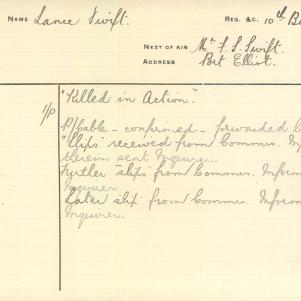 NAME Lance Swift. REG. &C. 10th
NEXT OF KIN Mr. F. S. Swift.
ADDRESS Port Elliot.
1/P "Killed in Action."
P/Cable - confirmed - forwarded
"Slips" received from Commns.
therein sent Inquirer.
Further "slip" from Commns. Inform
Inquirer
Later slip from Commns. Inform
Inquirer.